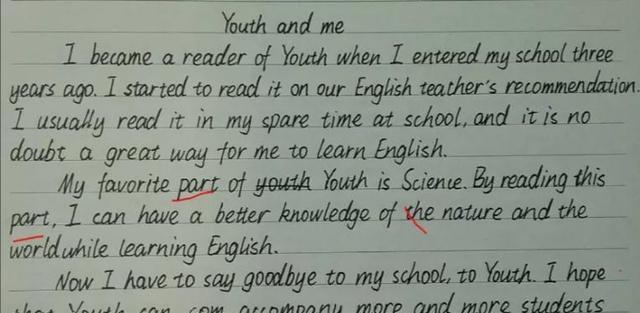 Youth and me
I became a reader of Youth when I entered my school three
years ago. I started to read it on our English teacher's recommendation.
I usually read it in my spare time at school, and it is no
doubt a great way for me to learn English.
My favorite part of youth Youth is Science. By reading this
part, I can have a better knowledge of the nature and the
world while learning English.
Now I have to say goodbye to my school, to Youth. I hope
that Youth can com accompany more and more students